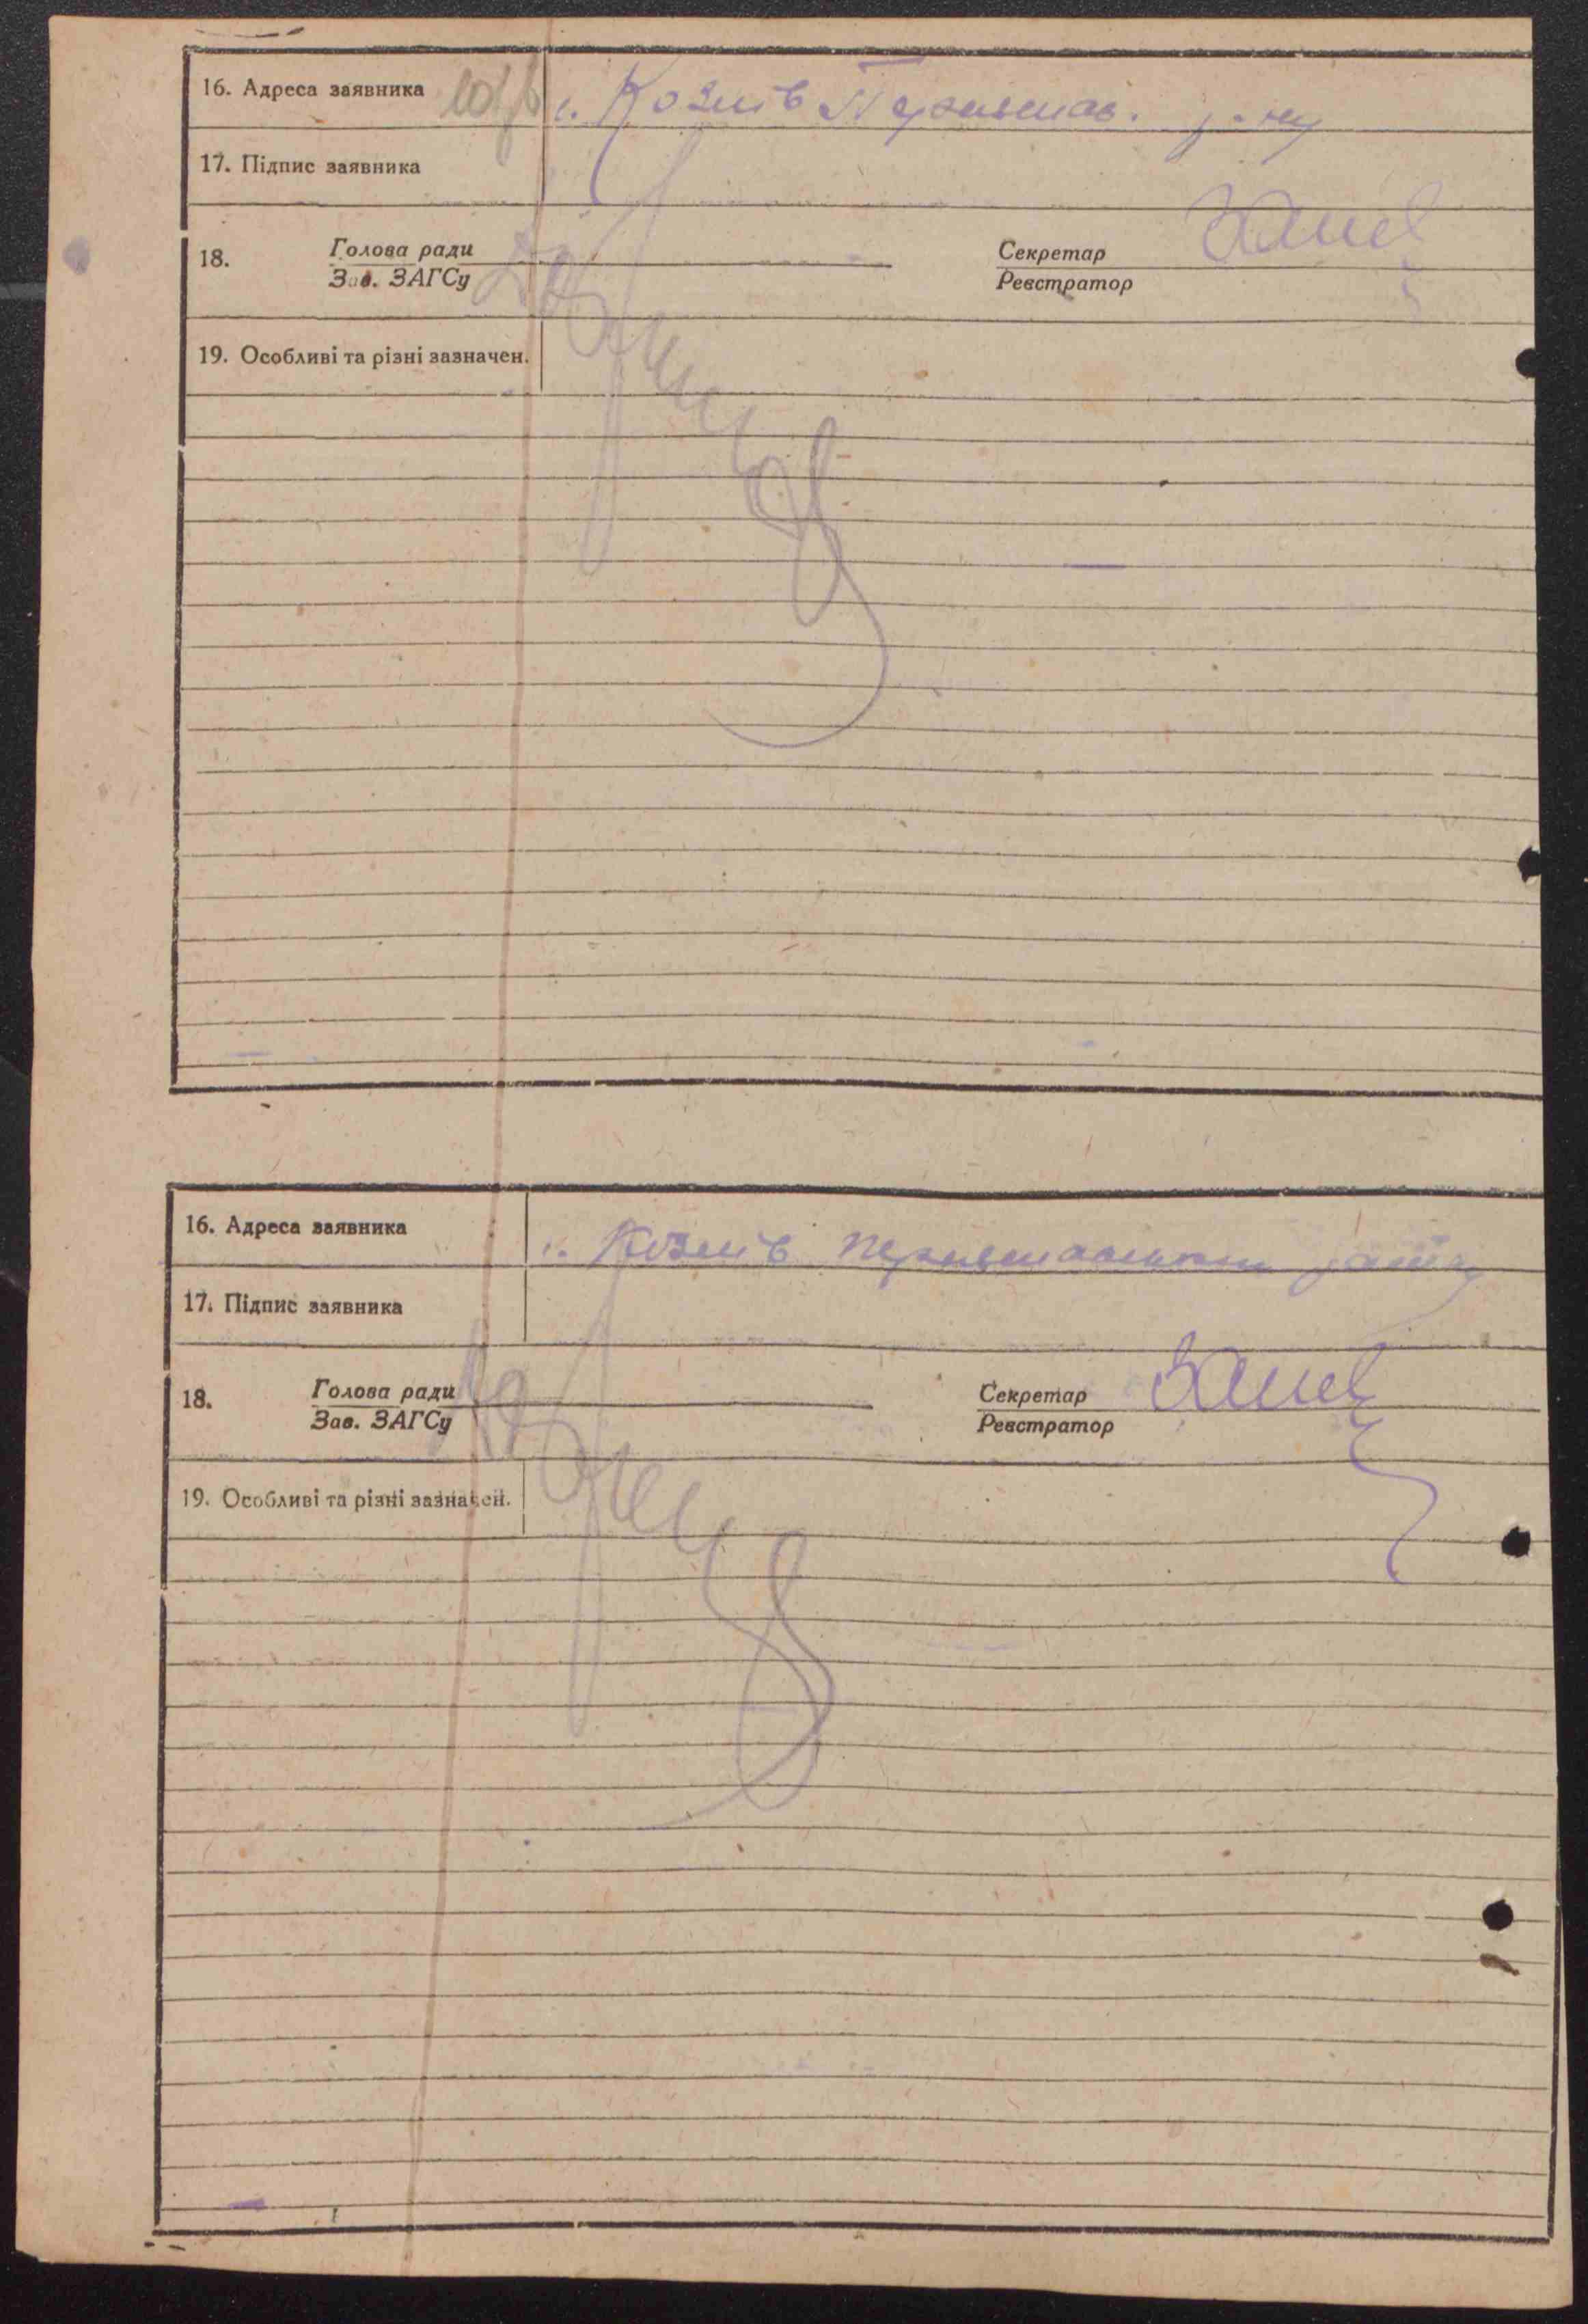 16. Адреса заявника с. Козлів Переяслав. р-ну
17. Підпис заявника
18. Голова ради Секретар
Зав. ЗАГСу Реєстратор
19. Особливі та різні зазначен.
16. Адреса заявника с. Козлів Переяславського району
17. Підпис заявника
18. Голова ради Секретар
Зав. ЗАГСу Реєстратор
19. Особливі та різні зазначен.